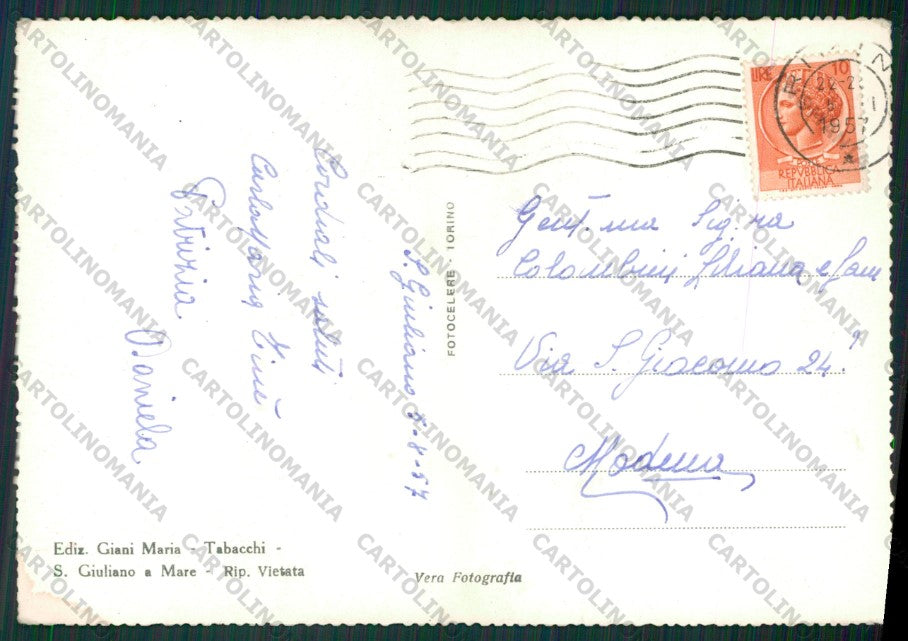 S. Giuliano 5-8-57
Cordiali saluti
Carla Maria Vinì
Patrizia
Daniela
Ediz. Giani Maria - Tabacchi -
S. Giuliano a Mare - Rip. Vietata
Vera Fotografia
FOTOCELERE · TORINO
LIRE 10
POSTE
REPVBBLICA
ITALIANA
22-2
1957
Gent.ma Sig.ra
Colombini Liliana e fam
Via S. Giacomo 24
Modena
CARTOLINOMANIA